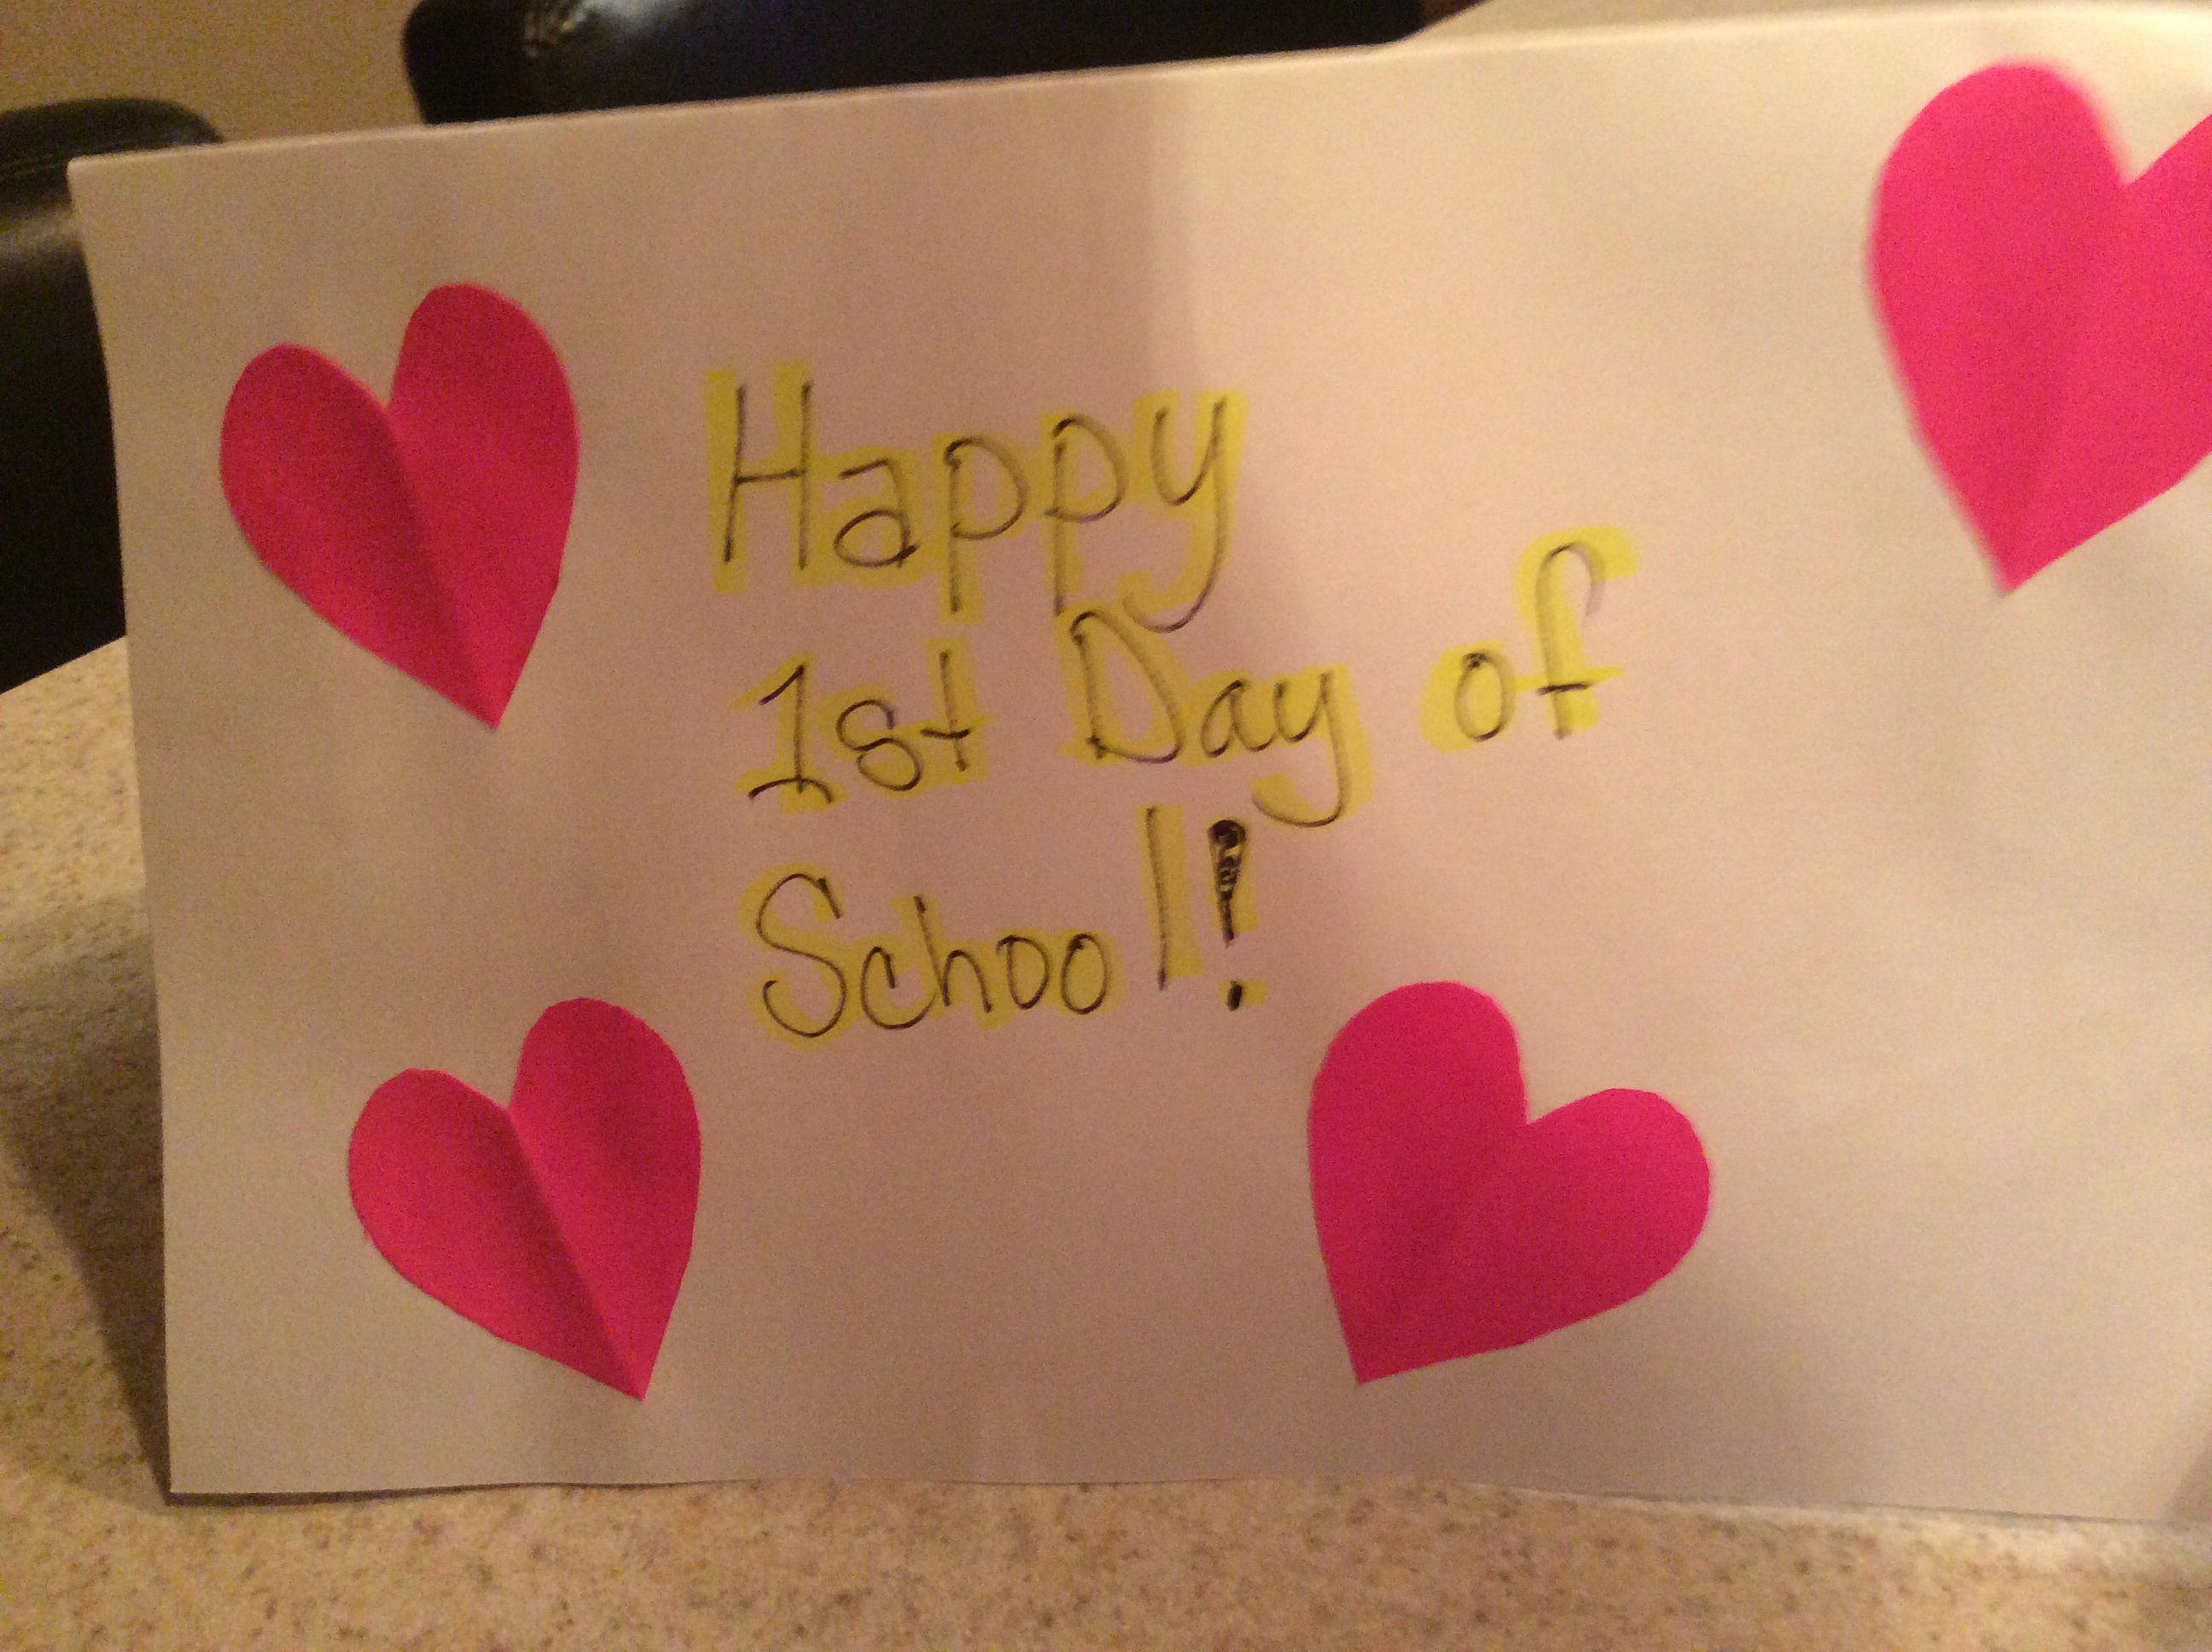 Happy
1st Day of
School!